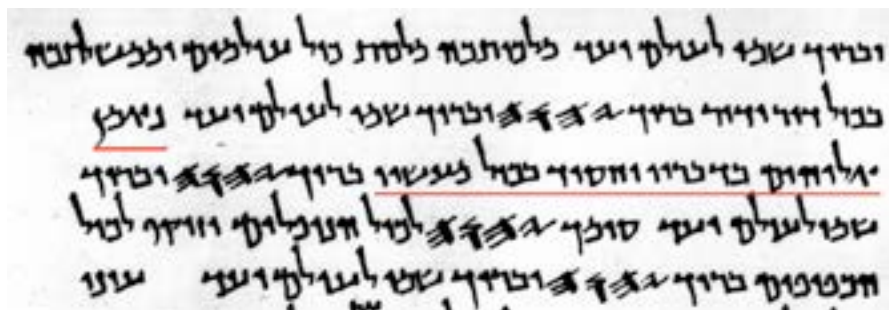 וברוך שמו לעולם ועד מלכותכה מלכות כול עולמים וממשלתכה
בכול דור ודור ברוך 𐤉𐤄𐤅𐤄 וברוך שמו לעולם ועד נאמן
אלוהים בדבריו וחסיד בכול מעשיו ברוך 𐤉𐤄𐤅𐤄 וברוך
שמו לעולם ועד סומך 𐤉𐤄𐤅𐤄 לכול הנופלים וזוקף לכול
הכפופים ברוך 𐤉𐤄𐤅𐤄 וברוך שמו לעולם ועד עיני